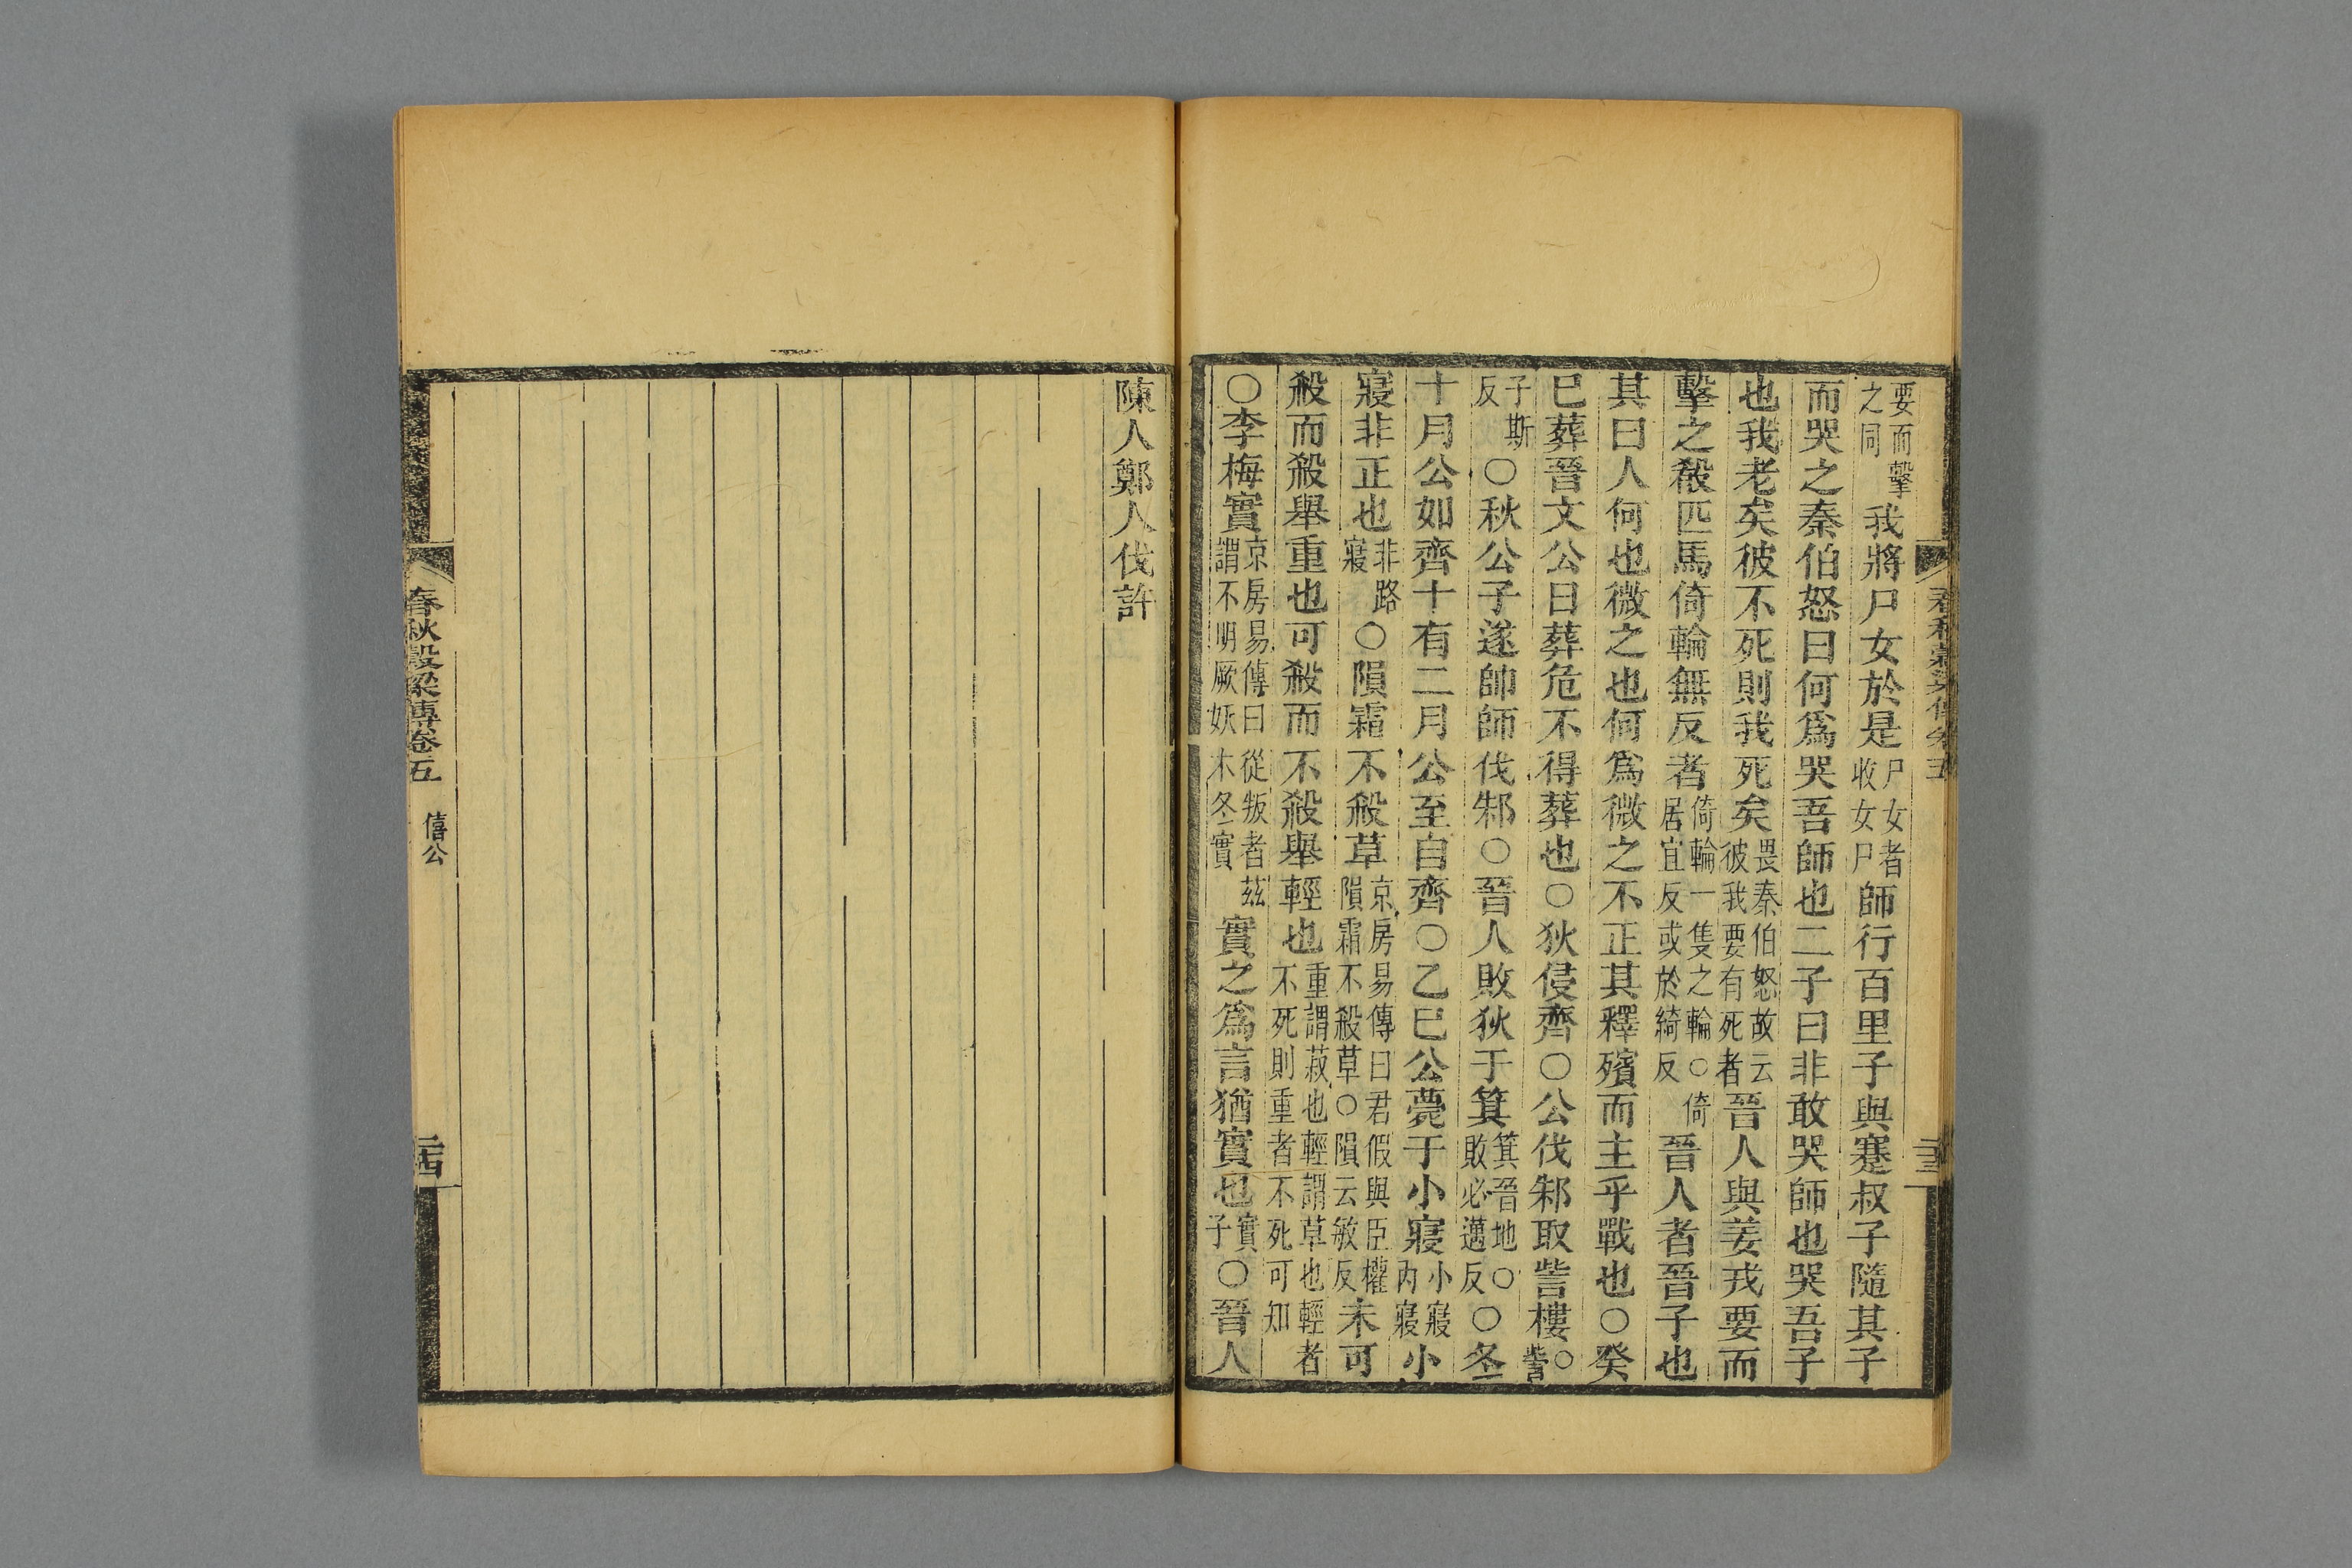 要而擊之同我將尸女於是尸女者收女尸師行百里子與蹇叔子隨其子
而哭之秦伯怒曰何爲哭吾師也二子曰非敢哭師也哭吾子
也我老矣彼不死則我死矣畏秦伯怒故云彼我要有死者晉人與姜戎要而
擊之殽匹馬倚輪無反者倚輪一隻之輪○倚居宜反或於綺反晉人者晉子也
其曰人何也微之也何爲微之不正其釋殯而主乎戰也○癸
巳葬晉文公日葬危不得葬也○狄侵齊○公伐邾取訾樓○訾
子斯反○秋公子遂帥師伐邾○晉人敗狄于箕箕晉地○敗必邁反○冬
十月公如齊十有二月公至自齊○乙巳公薨于小寢小寢內寢小
寢非正也非路寢○隕霜不殺草京房易傳曰君假與臣權隕霜不殺草○隕云敏反未可
殺而殺舉重也可殺而不殺舉輕也重謂菽也輕謂草也輕者不死則重者不死可知
○李梅實京房易傳曰從叛者茲謂不明厥妖木冬實實之爲言猶實也實子○晉人
陳人鄭人伐許
春秋穀梁傳卷五 僖公 二十四